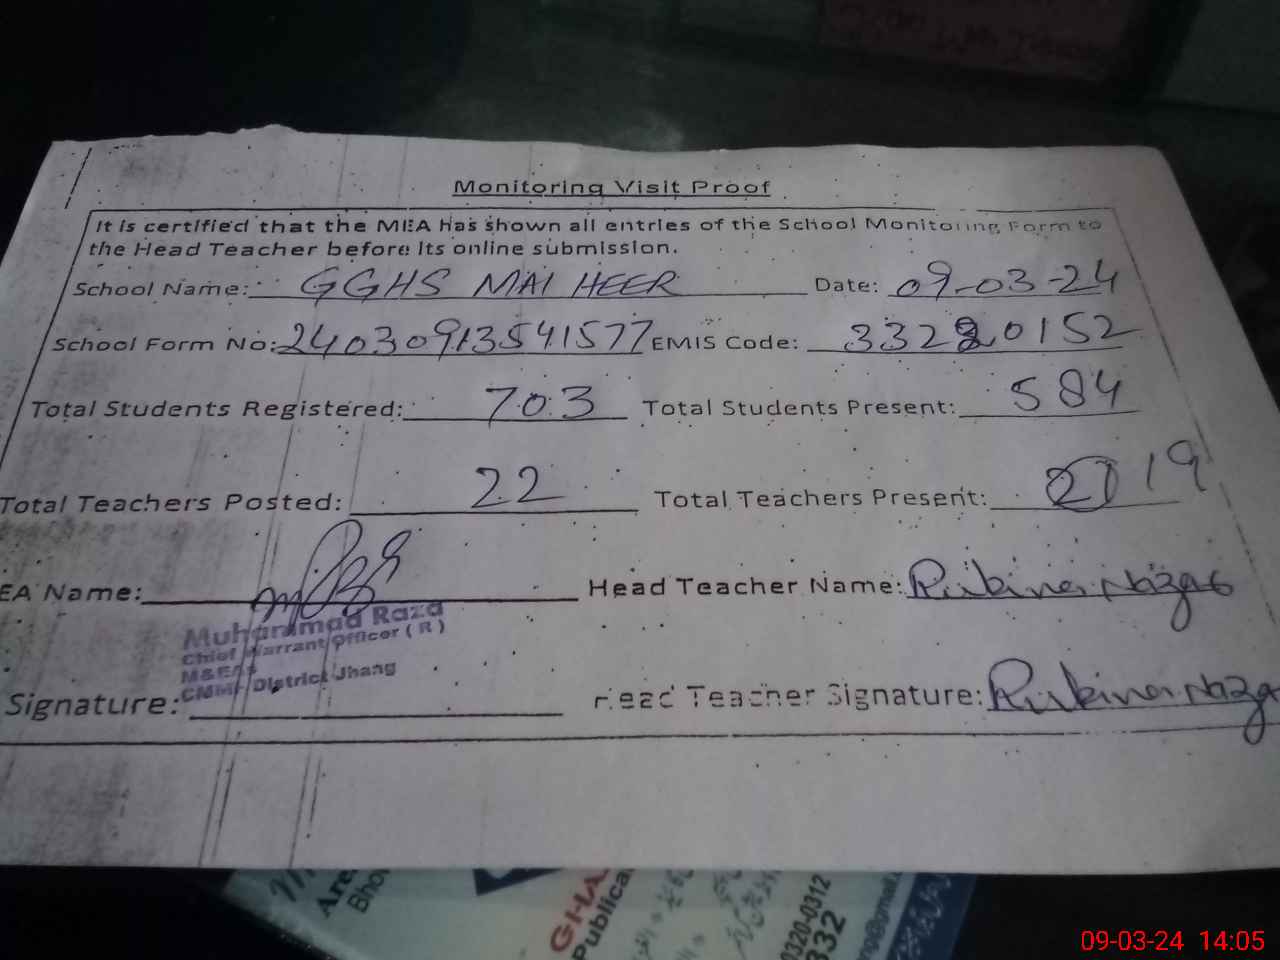 Monitoring Visit Proof
It is certified that the MEA has shown all entries of the School Monitoring Form to
the Head Teacher before its online submission.
School Name: GGHS MAI HEER Date: 09-03-24
School Form No: 24030913541577 EMIS Code: 33220152
Total Students Registered: 703 Total Students Present: 584
Total Teachers Posted: 22 Total Teachers Present: 19
EA Name: Head Teacher Name: Rubina
Muhammad Raza
Chief Warrant Officer ( R )
M&EAs
CMMF District Jhang
Signature: Head Teacher Signature: Rubina
Bho
GHA
Publica
0320-0312
332
@gmail.
09-03-24 14:05